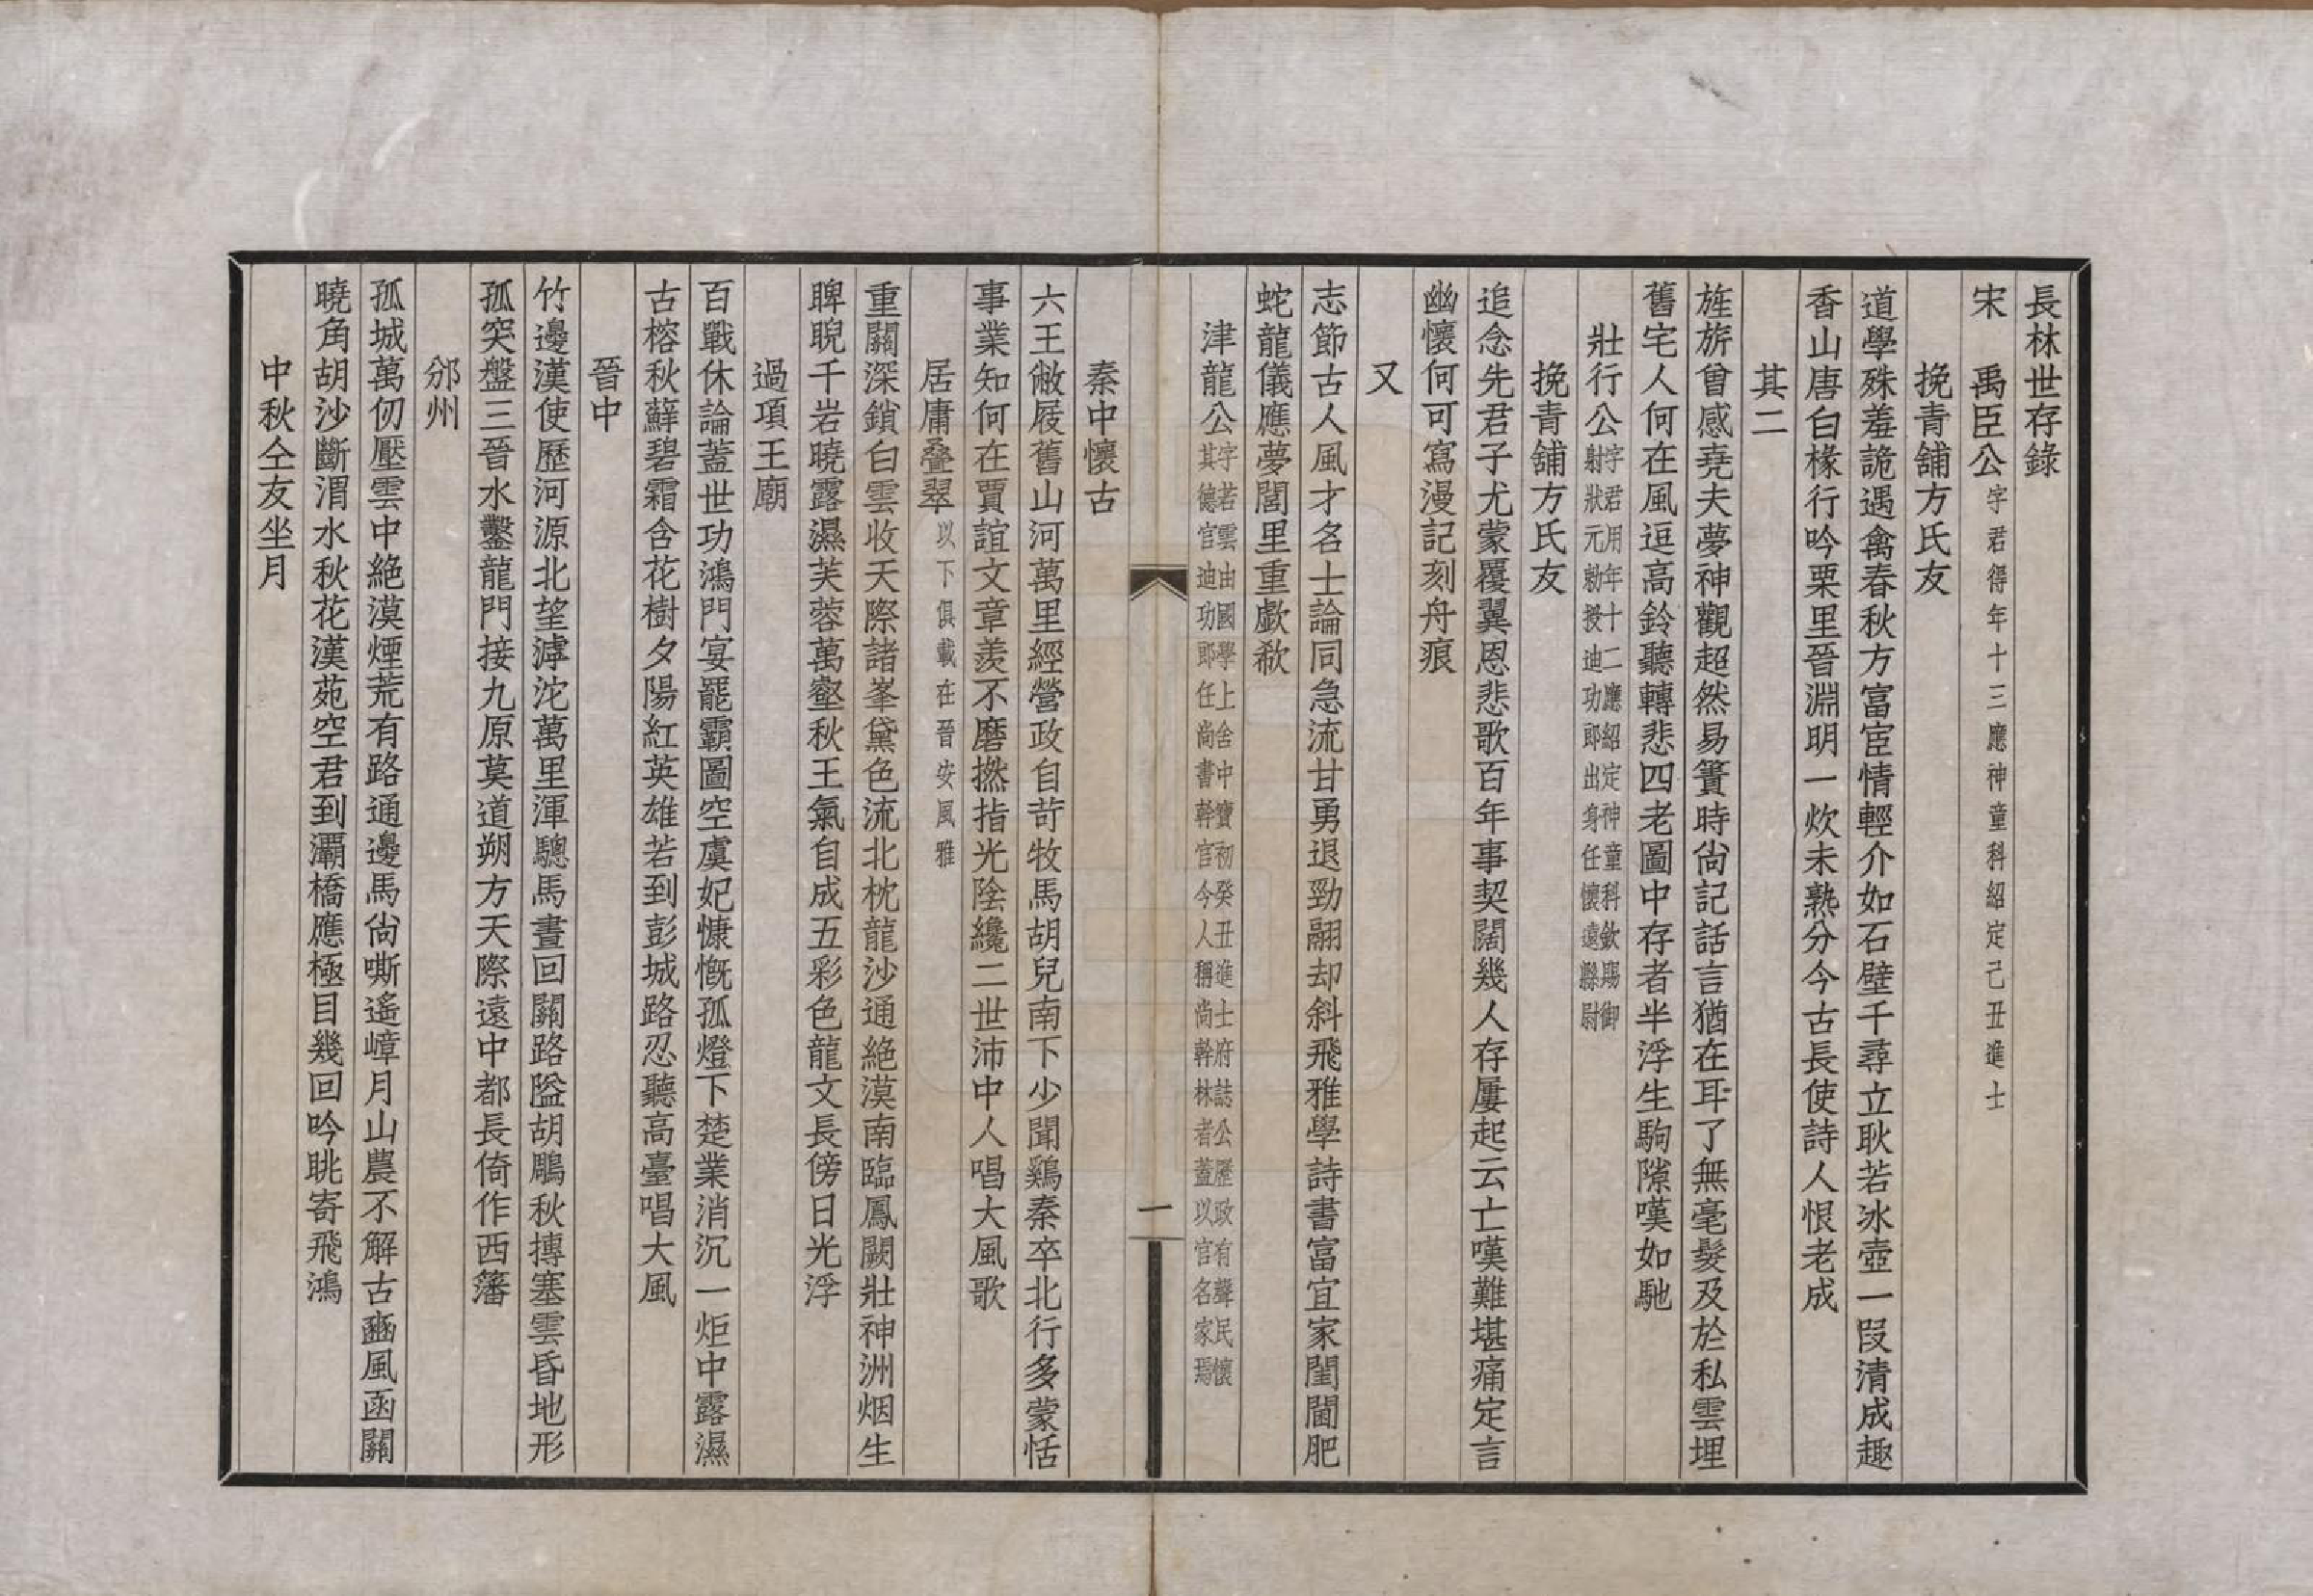 長林世存錄
宋　禹臣公字君得年十三應神童科紹定己丑進士
挽青舖方氏友
道學殊羞詭遇禽春秋方富宦情輕介如石壁千尋立耿若冰壺一段清成趣
香山唐白椽行吟栗里晉淵明一炊未熟分今古長使詩人恨老成
其二
旌旂曾感堯夫夢神觀超然易簀時尙記話言猶在耳了無毫髮及於私雲埋
舊宅人何在風逗高鈴聽轉悲四老圖中存者半浮生駒隙嘆如馳
壯行公字君用年十二應紹定神童科欽賜御射狀元勑授迪功郎出身任懷遠縣尉
挽青舖方氏友
追念先君子尤蒙覆翼恩悲歌百年事契闊幾人存屢起云亡嘆難堪痛定言
幽懷何可寫漫記刻舟痕
又
志節古人風才名士論同急流甘勇退勁翮却斜飛雅學詩書富宜家閨閫肥
蛇龍儀應夢閭里重歔欷
津龍公字若雲由國學上舍中寶初癸丑進士府誌公歷政有聲民懷其德官迪功郎任尙書幹官今人稱尙幹林者蓋以官名家焉
一
秦中懷古
六王敝屣舊山河萬里經營政自苛牧馬胡兒南下少聞鷄秦卒北行多蒙恬
事業知何在賈誼文章羨不磨撚指光陰纔二世沛中人唱大風歌
居庸叠翠以下俱載在晉安風雅
重關深鎖白雲收天際諸峯黛色流北枕龍沙通絕漠南臨鳳闕壯神洲烟生
睥睨千岩曉露濕芙蓉萬壑秋王氣自成五彩色龍文長傍日光浮
過項王廟
百戰休論蓋世功鴻門宴罷霸圖空虞妃慷慨孤燈下楚業消沉一炬中露濕
古榕秋蘚碧霜含花樹夕陽紅英雄若到彭城路忍聽高臺唱大風
晉中
竹邊漢使歷河源北望滹沱萬里渾驄馬晝回關路隘胡鵰秋摶塞雲昏地形
孤突盤三晉水鑿龍門接九原莫道朔方天際遠中都長倚作西籓
邠州
孤城萬仞壓雲中絕漠煙荒有路通邊馬尙嘶遙嶂月山農不解古豳風函關
曉角胡沙斷渭水秋花漢苑空君到灞橋應極目幾回吟眺寄飛鴻
中秋仝友坐月